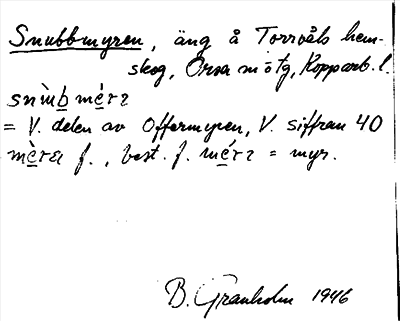 Snubbmyren, äng å Torrvåls hem-
skog, Orsa mötg, Kopparb. l.
snùmb mérɿ
= V. delen av Offermyren, V. siffran 40
mèra f., best. f. mérɿ = myr.
B. Granholm 1946